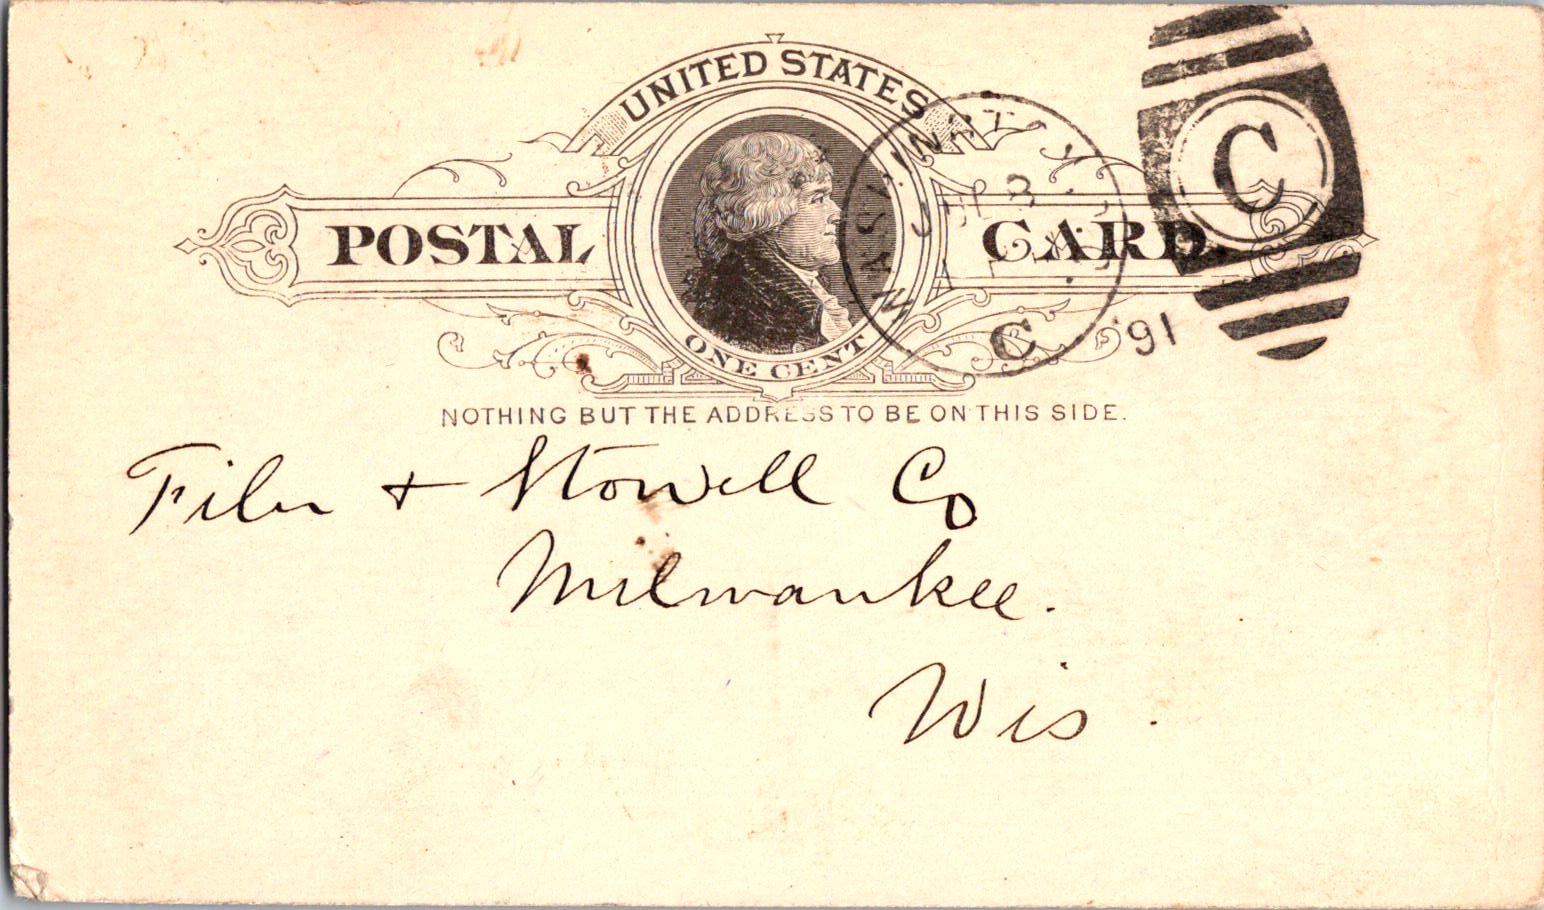 UNITED STATES
POSTAL CARD
ONE CENT
NOTHING BUT THE ADDRESS TO BE ON THIS SIDE.
WASHINGTON
C
'91
C
Filer + Stowell Co
Milwaukee.
Wis.